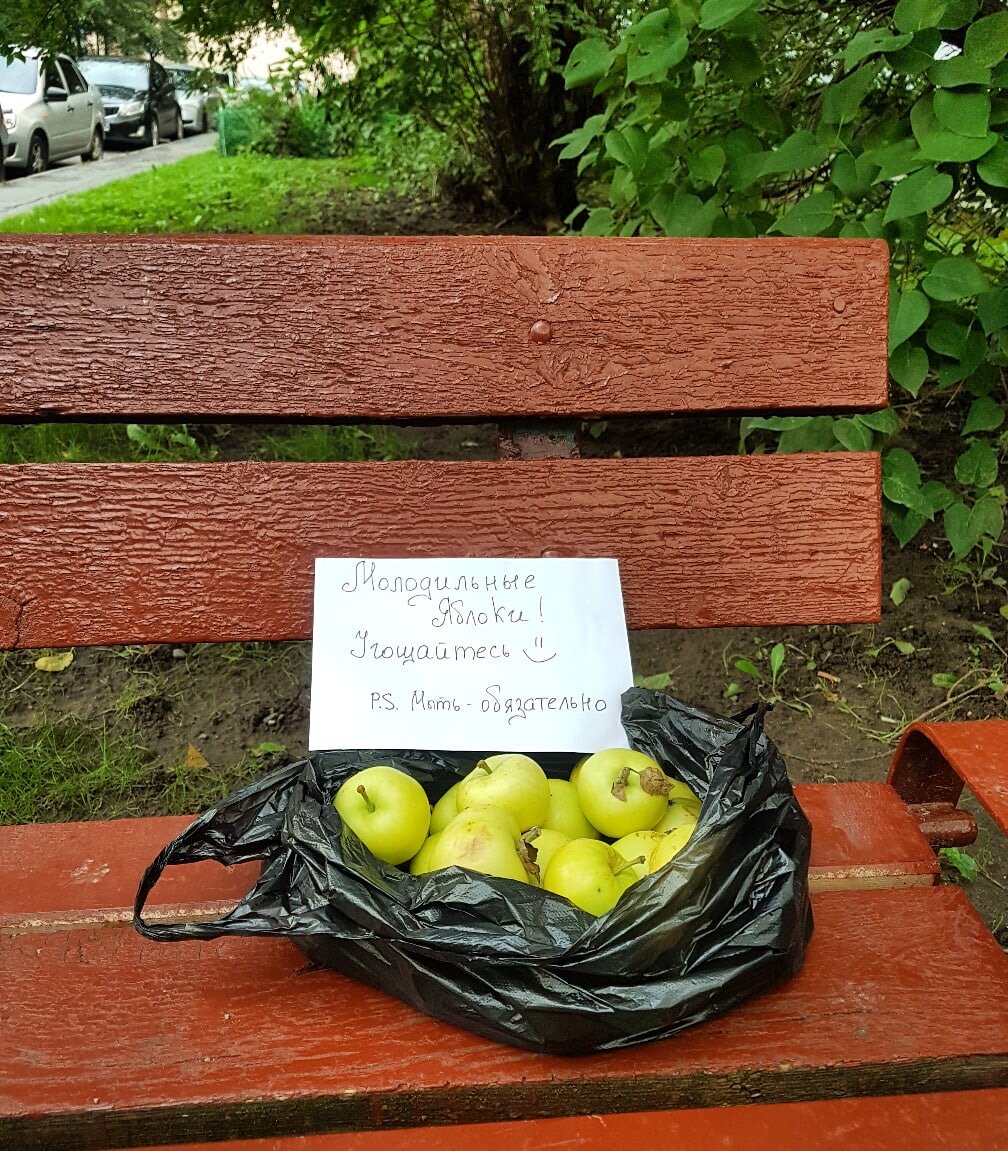 Молодильные
Яблоки!
Угощайтесь
P.S. Мыть - обязательно